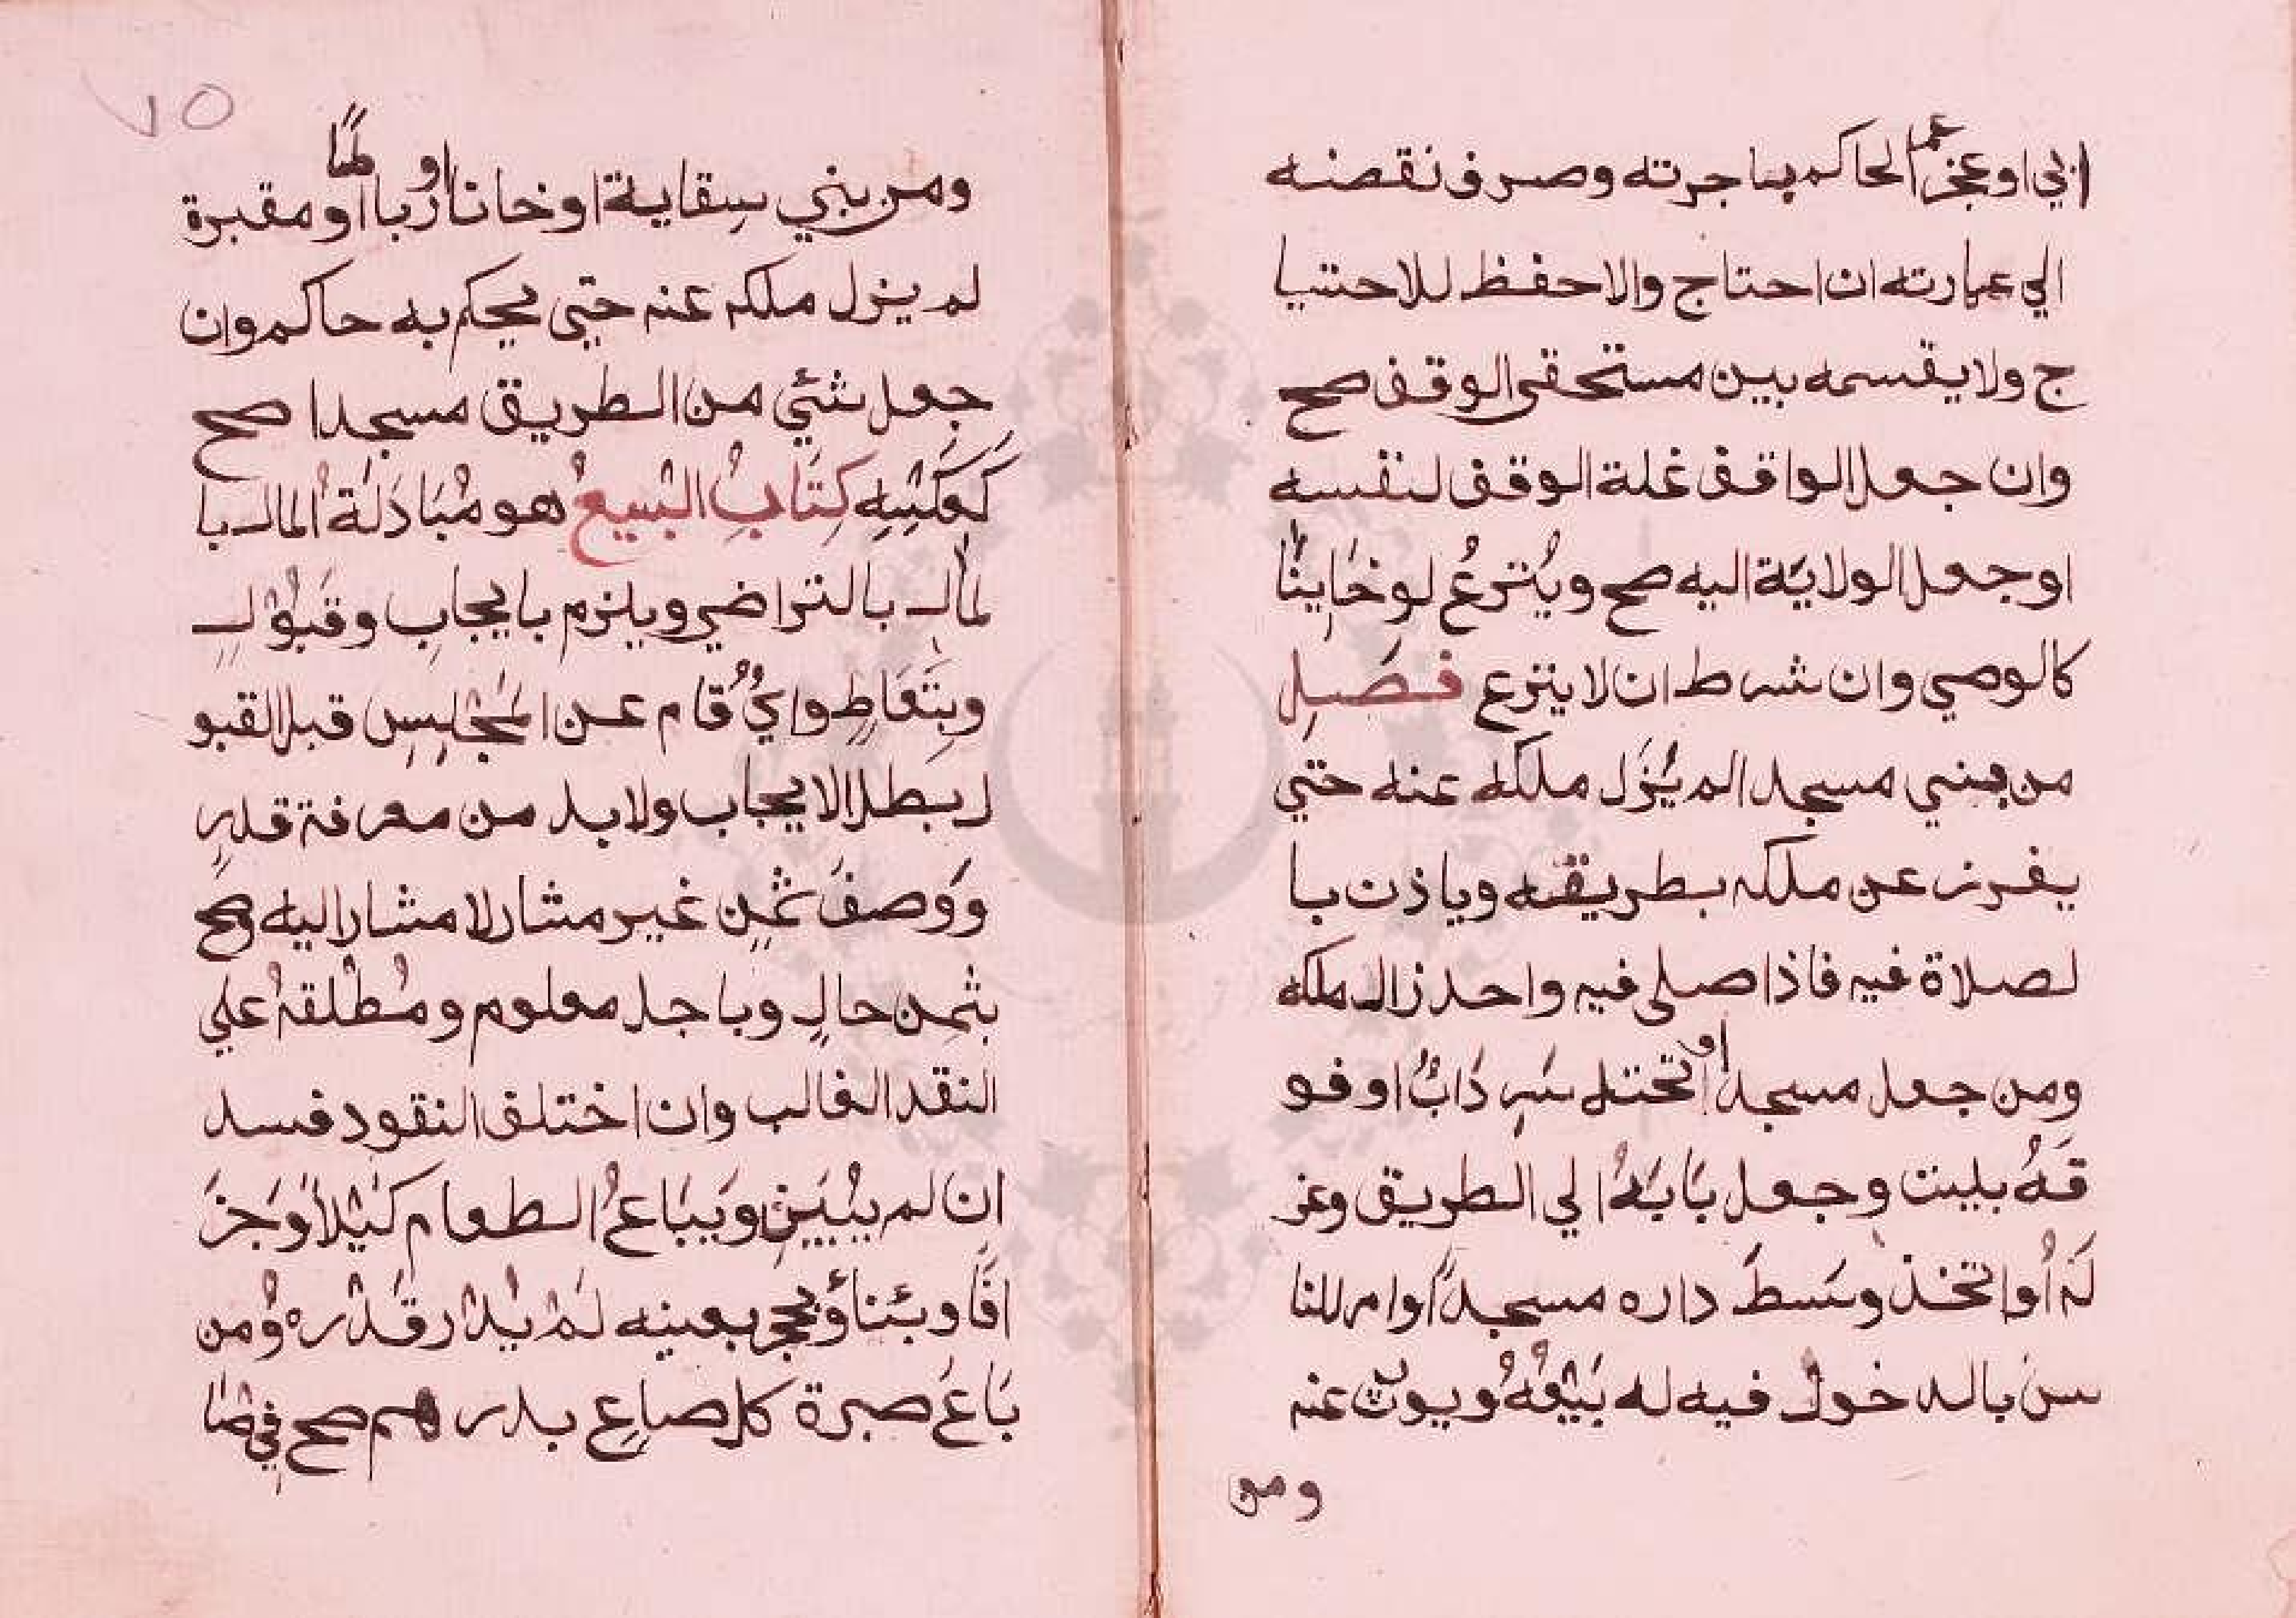 ابي او عجز عمر الحاكم بها جرته وصرف نقضنه
الي عمارته ان احتاج والا حفظ للاحتيا
ج ولا يقسمه بين مستحقي الوقف صح
وان جعل الواقف غلة الوقف لنفسه
او جعل الولايَة اليه صح ويُنترعُ لو خَاينًا
كالوصي وان شرط ان لا ينزع فصَل
من بني مسجد الم يُزَل ملكه عنه حتي
يفرز عن ملكه بطريقه وياذن با
لصلاة فيه فاذا صلى فيه واحد زال ملكه
ومن جعل مسجدا او تحته سَرِدَابٌ او فو
قَهُ بيت وجعل بَابَهُ الي الطريق وعز
لَهُ أو اتخذ وسَطَ داره مسجداً او امر للنا
س بالدخول فيه له بَيْعُهُ ويورث عنه
ومن
٧٥
ومن بني سِقاية او خانا او رباطًا او مقبرة
لم يزل ملكه عنه حتي يحكم به حاكم وان
جعل شئي من الطريق مسجدا صح
كَعَكْسِهِ كِتَابُ البَيعُ هو مُبَادَلَةُ المال با
لمال بالتراضي ويلزم بايجابِ وقَبُوْلِ
وبِتَعَاطِ وايٌ قَام عن المَجْلِسِ قبل القبو
ل بطل الايجاب ولا بد من معرفة قدرٍ
وَوَصفَ ثَمَنٍ غير مشار لا مشار اليه وصح
بثمن حالٍ وباجل معلوم ومُطْلقهُ علي
النقد الغالب وان اختلف النقود فسد
ان لم يُبَيَنْ ويَبَاعُ الطعام كَيْلاً وَجزَ
افًا وبئناؤ حجر بعينه لَمْ يُدْرَ قَدْرُه وُمن
بَاعَ صبرة كل صاعٍ بدرهم صح في صَا